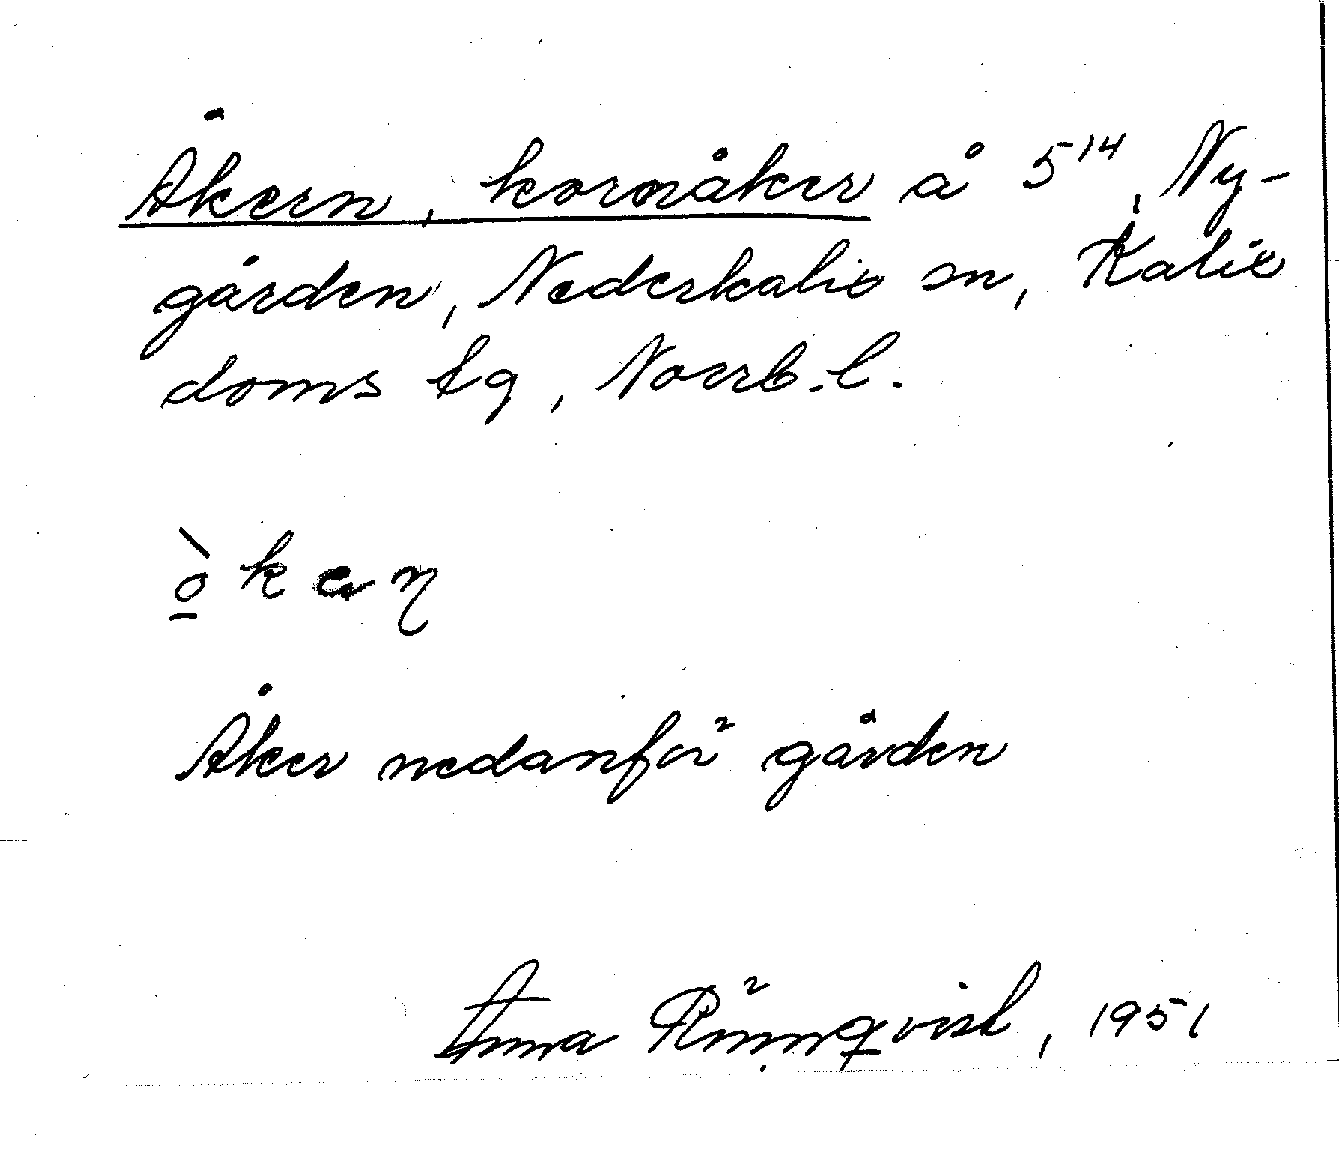 Åkern, kornåker å 5¹⁴, Ny-
gården, Nederkalix sn, Kalix
doms tg, Norrb. l.
ò̲ken
Åker nedanför gården
Anna Rönnqvist, 1951